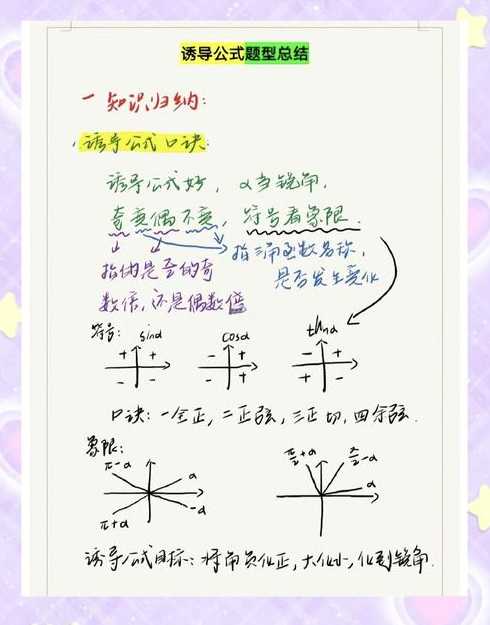 诱导公式题型总结
一 知识归纳:
1.诱导公式口诀:
诱导公式好, α当锐角,
奇变偶不变, 符号看象限.
指的是π/2的奇 指三角函数名称,
数倍,还是偶数倍 是否发生变化
符号: sinα cosα tanα
+ + - + - +
- - - + + -
口诀: 一全正, 二正弦, 三正切, 四余弦.
象限:
π-α α π/2+α π/2-α
π+α -α α
诱导公式目标: 将角负化正, 大化小, 化到锐角.